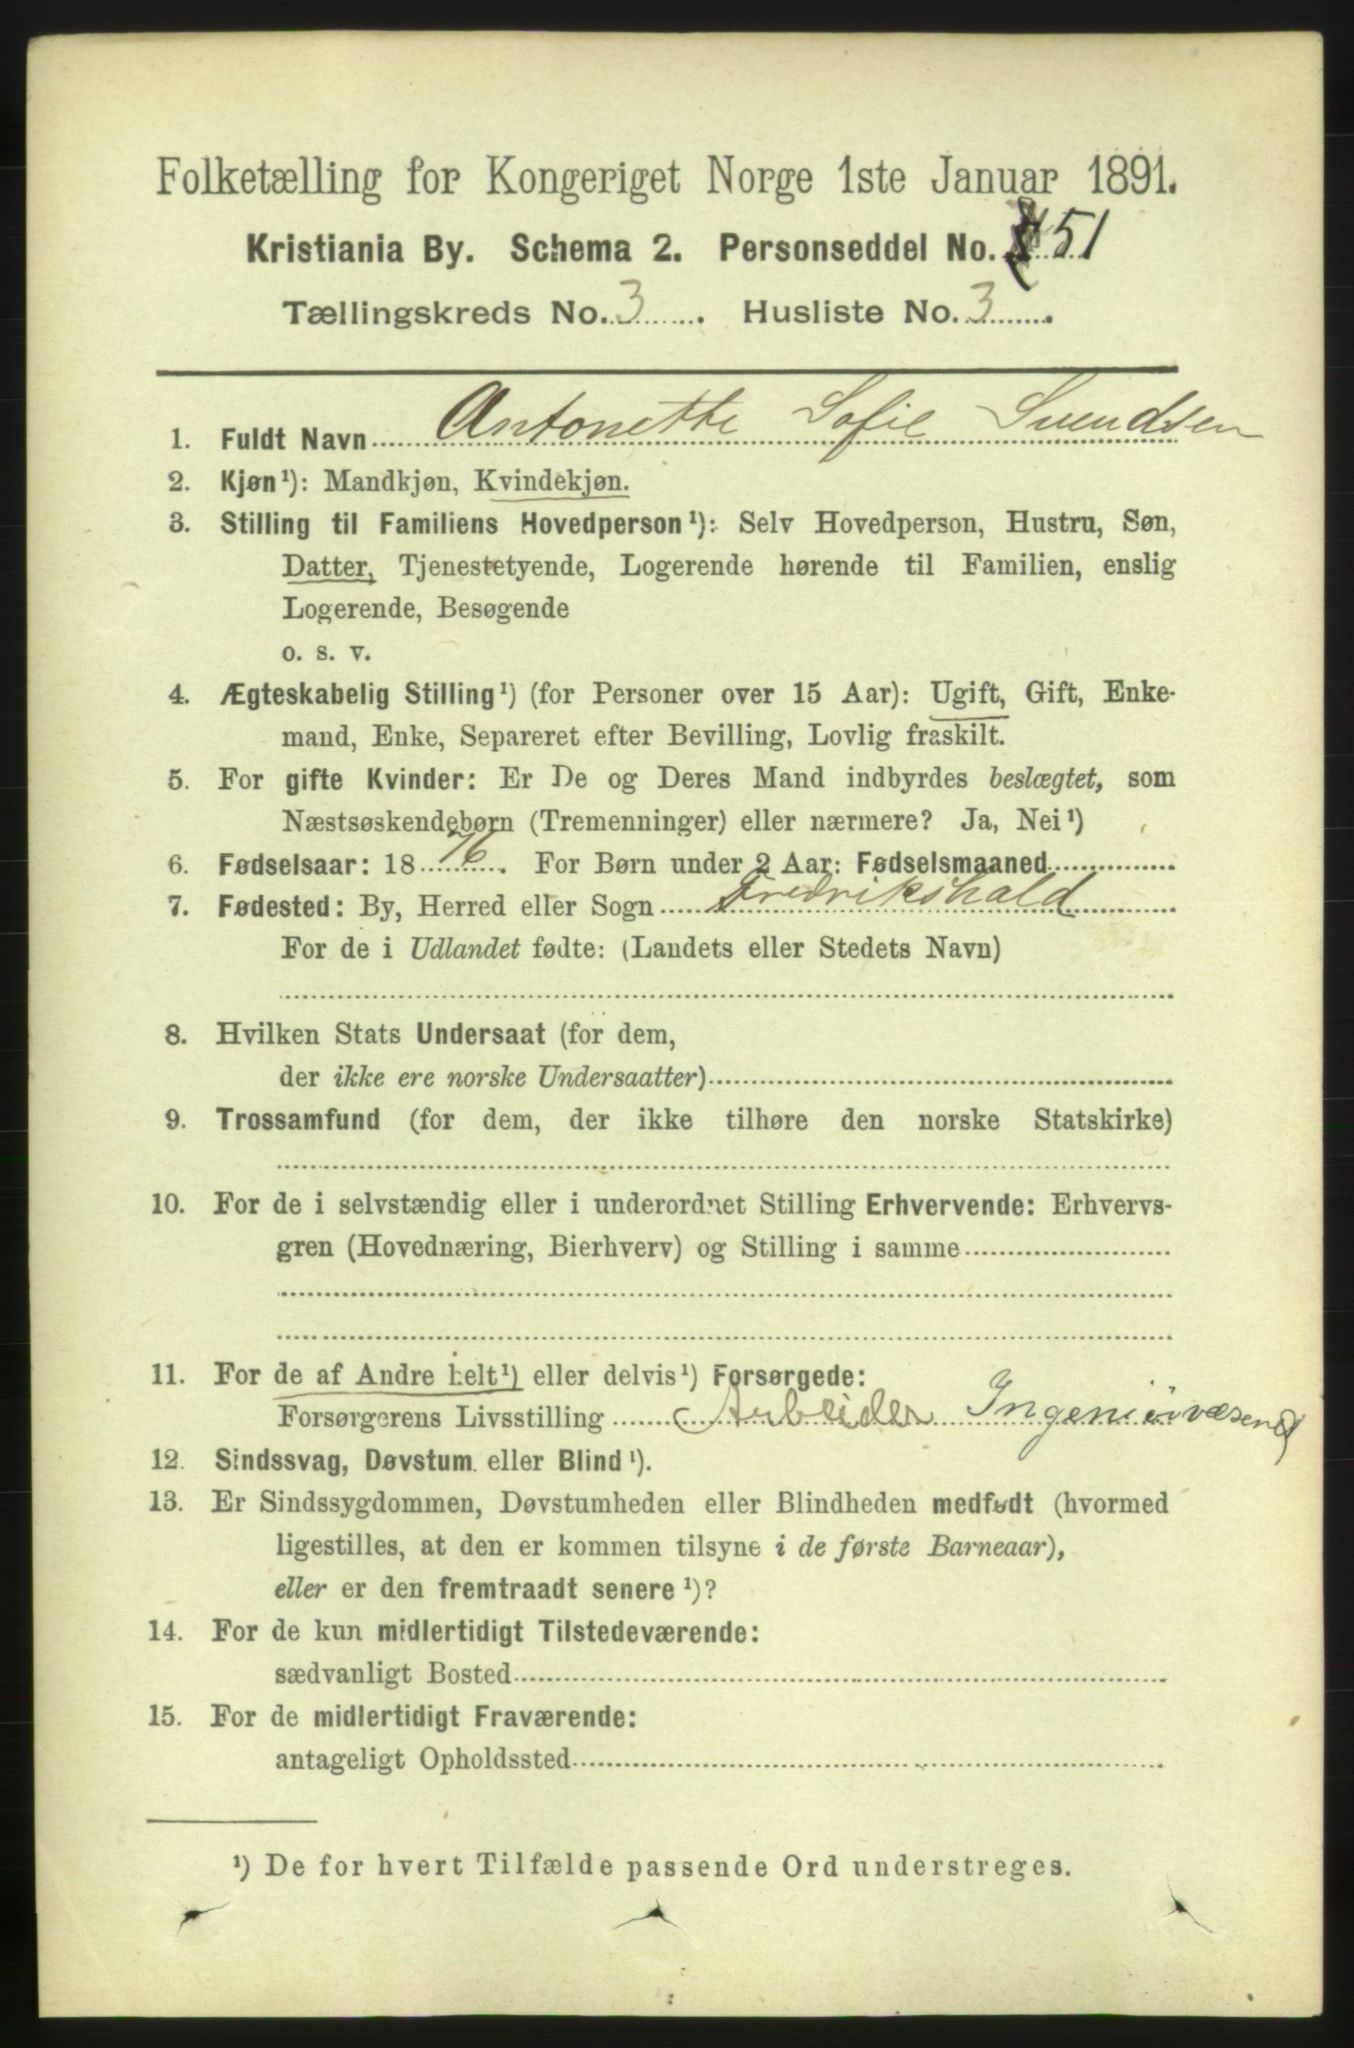 Folketælling for Kongeriget Norge 1ste Januar 1891.
Kristiania By. Schema 2. Personseddel No. 51
Tællingskreds No. 3. Husliste No. 3.
1. Fuldt Navn Antonette Sofie Svendsen
2. Kjøn¹): Mandkjøn, Kvindekjøn.
3. Stilling til Familiens Hovedperson¹): Selv Hovedperson, Hustru, Søn,
Datter, Tjenestetyende, Logerende hørende til Familien, enslig
Logerende, Besøgende
o. s. v.
4. Ægteskabelig Stilling¹) (for Personer over 15 Aar): Ugift, Gift, Enke-
mand, Enke, Separeret efter Bevilling, Lovlig fraskilt.
5. For gifte Kvinder: Er De og Deres Mand indbyrdes beslægtet, som
Næstsøskendebørn (Tremenninger) eller nærmere? Ja, Nei¹)
6. Fødselsaar: 1876. For Børn under 2 Aar: Fødselsmaaned
7. Fødested: By, Herred eller Sogn Fredrikshald
For de i Udlandet fødte: (Landets eller Stedets Navn)
8. Hvilken Stats Undersaat (for dem,
der ikke ere norske Undersaatter)
9. Trossamfund (for dem, der ikke tilhøre den norske Statskirke)
10. For de i selvstændig eller i underordnet Stilling Erhvervende: Erhvervs-
gren (Hovednæring, Bierhverv) og Stilling i samme
11. For de af Andre helt¹) eller delvis¹) Forsørgede:
Forsørgerens Livsstilling Arbeider Ingeniørvæsenet
12. Sindssvag, Døvstum eller Blind¹).
13. Er Sindssygdommen, Døvstumheden eller Blindheden medfødt (hvormed
ligestilles, at den er kommen tilsyne i de første Barneaar),
eller er den fremtraadt senere¹)?
14. For de kun midlertidigt Tilstedeværende:
sædvanligt Bosted
15. For de midlertidigt Fraværende:
antageligt Opholdssted
¹) De for hvert Tilfælde passende Ord understreges.